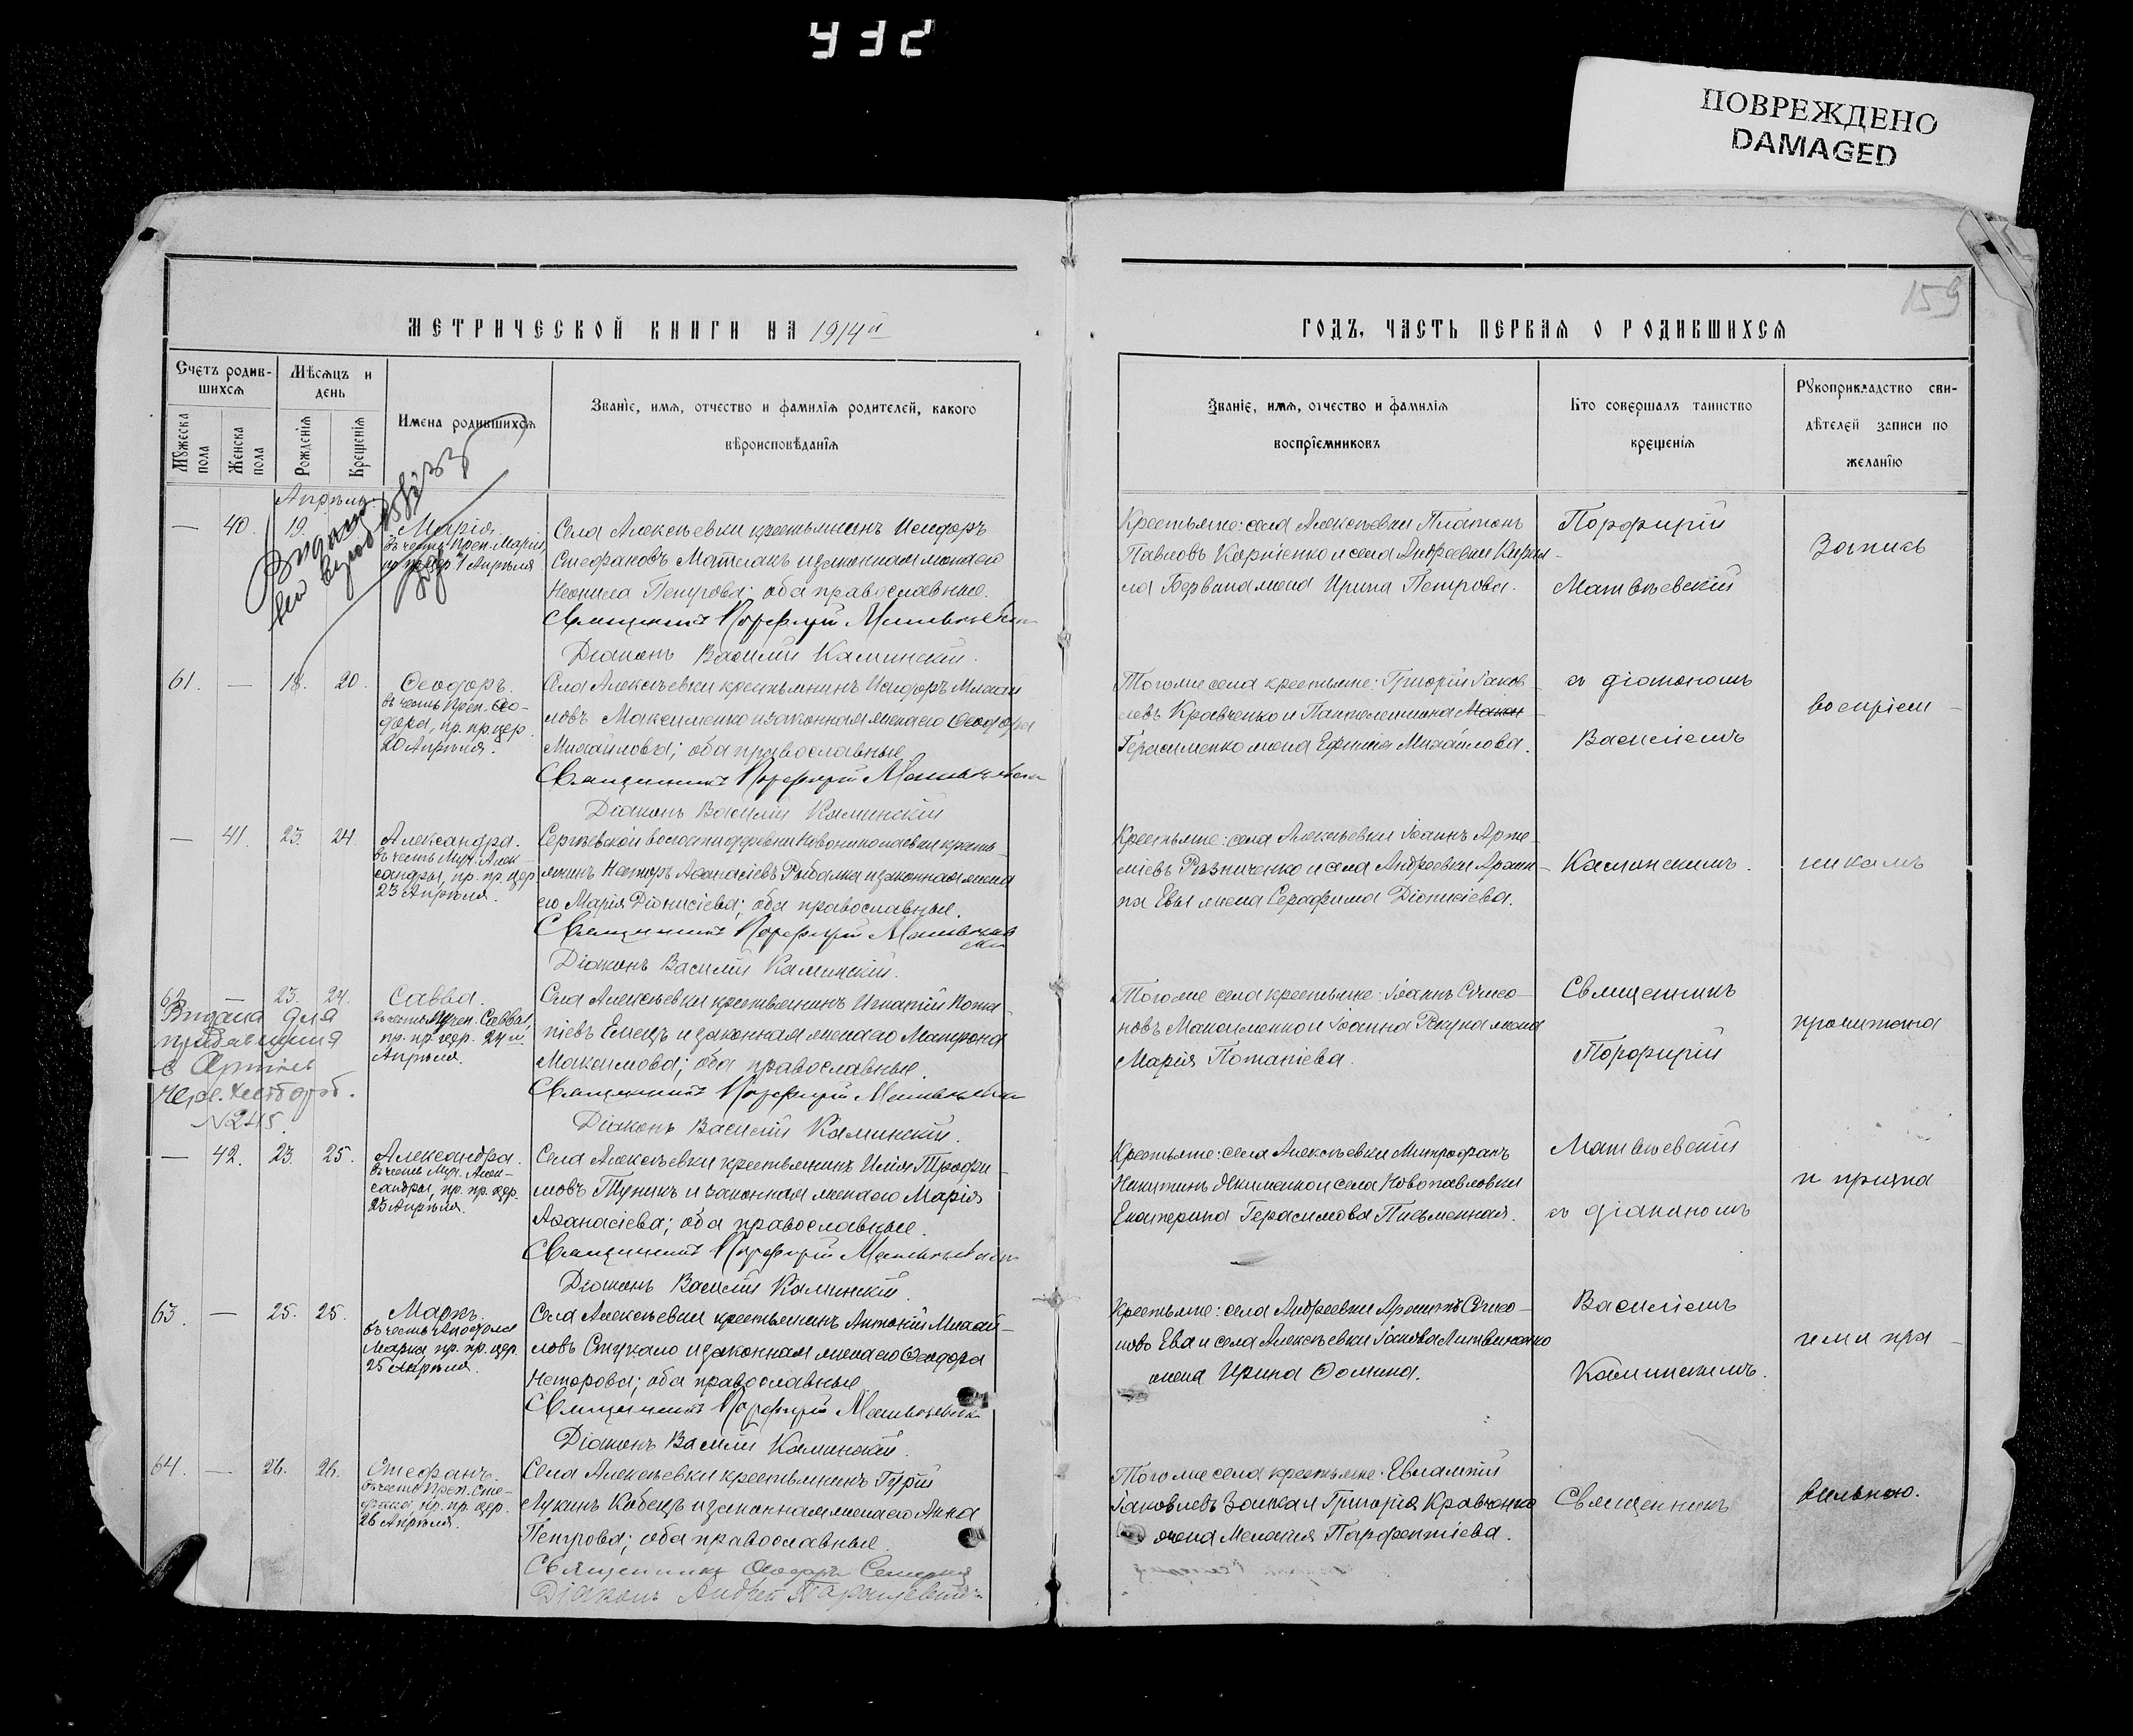 432
ПОВРЕЖДЕНО
DAMAGED
159
МЕТРИЧЕСКОЙ КНИГИ НА 1914й
ГОДЪ, ЧАСТЬ ПЕРВАЯ О РОДИВШИХСЯ
Счетъ родив-
шихся
Мужеска
пола
Женска
пола
Мѣсяцъ и
день
Рожденія
Крещенія
Имена родившихся
Званіе, имя, отчество и фамилія родителей, какого
вѣроисповѣданія
Званіе, имя, отчество и фамилія
воспріемниковъ
Кто совершалъ таинство
крещенія
Рукоприкладство сви-
дѣтелей записи по
желанію
Апрѣль.
— 40. 19.
Марія.
въ честь Преп. Маріи,
1 Апрѣля
Села Алексѣевки крестьянинъ Исидоръ
Стефановъ Матлакъ и законная жена его
Неонила Петрова; оба православные.
Священникъ Порфирій Матвѣевскій
Діаконъ Василій Каминскій.
Крестьяне: села Алексѣевки Платонъ
Павловъ Карпенко и села Андреевки Кирил-
ла жена Ирина Петрова.
Порфирій
Матвѣевскій
Запись
61. — 18. 20.
Ѳеодоръ.
въ честь Преп. Ѳео-
дора, пр. пр. цер.
20 Апрѣля.
Села Алексѣевки крестьянинъ Исидоръ Михаи-
ловъ Максименко и законная жена его Ѳеодора
Михайлова; оба православные.
Священникъ Порфирій Матвѣевскій
Діаконъ Василій Каминскій
Того же села крестьяне: Григорій Іаков-
левъ Кравченко и Пантелеимона Макси-
Герасименко жена Ефимія Михайлова.
съ діакономъ
Василіемъ
воспріем-
— 41. 23. 24.
Александра.
въ честь Муч. Алек-
сандры, пр. пр. цер.
23 Апрѣля.
Сергѣевской волости деревни Новониколаевки кресть-
янинъ Несторъ Аѳанасіевъ Рыбалка и законная жена
его Марія Діонисіева; оба православные.
Священникъ Порфирій Матвѣев
скій
Діаконъ Василій Каминскій.
Крестьяне: села Алексѣевки Іоаннъ Арте-
міевъ Рѣзниченко и села Андреевки Архип-
па Евы жена Серафима Діонисіева.
Каминскимъ.
никамъ
62. — 23. 24.
Савва.
въ честь Мучен. Саввы,
пр. пр. цер. 24й
Апрѣля.
Видана для
с Артіль
№245.
Села Алексѣевки крестьянинъ Игнатій Пота-
піевъ Емецъ и законная жена его Матрона
Максимова; оба православные.
Священникъ Порфирій Матвѣевскій
Діаконъ Василій Каминскій.
Того же села крестьяне: Іоаннъ Сѵмео-
новъ Максименко и Іоанна Рекуна жена
Марія Потапіева.
Священникъ
Порфирій
прочитана
— 42. 23. 25.
Александра.
въ честь Муч. Алек-
сандры, пр. пр. цер.
23 Апрѣля.
Села Алексѣевки крестьянинъ Илія Трофи-
мовъ Туникъ и законная жена его Марія
Аѳанасіева; оба православные.
Священникъ Порфирій Матвѣевскій
Діаконъ Василій Каминскій.
Крестьяне: села Алексѣевки Митрофанъ
Никитинъ Якименко и села Новопавловки
Екатерина Герасимова Письменная.
Матвѣевскій
съ діакономъ
и призна
63. — 25. 25.
Маркъ.
въ честь Апостола
Марка пр. пр. цер.
25 Апрѣля.
Села Алексѣевки крестьянинъ Антоній Михай-
ловъ Стукало и законная жена его Ѳеодора
Несторова; оба православные
Священникъ Порфирій Матвѣевскій
Діаконъ Василій Каминскій.
Крестьяне: села Андреевки Архиппъ Сѵмео-
новъ Ева и села Алексѣевки Іакова Литвиненко
жена Ирина Ѳомина.
Василіемъ
Каминскимъ.
ими пра-
64. — 26. 26.
Стефанъ.
въ честь Преп. Сте-
фана, пр. пр. цер.
26 Апрѣля.
Села Алексѣевки крестьянинъ Гурій
Лукинъ Кобецъ и законная жена его Анна
Петрова; оба православные.
Священникъ Ѳеодоръ
Діаконъ Андрей
Того же села крестьяне: Евлампій
Іаковлевъ Заика и Григорія Кравченко
жена Меланія Парфентіева.
Священникъ
вильною.